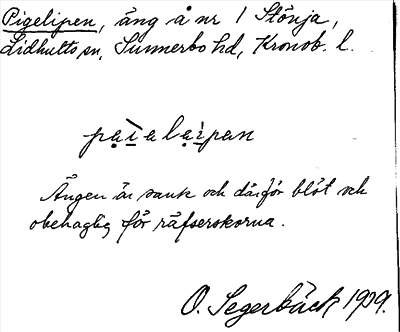 Pigelipen, äng å nr 1 Stönja,
Lidhults sn, Sunnerbo hd, Kronob. l.
pại̱alại̱pan
Ängen är sank och därför blöt och
obehaglig för räfserskorna.
O. Segerbäck 1929.